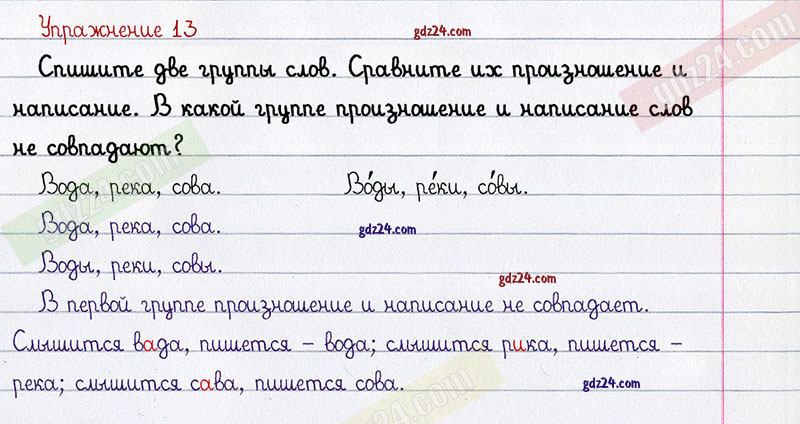 Упражнение 13 gdz24.com
Спишите две группы слов. Сравните их произношение и
написание. В какой группе произношение и написание слов
не совпадают?
Вода, река, сова. Во́ды, ре́ки, со́вы.
Вода, река, сова. gdz24.com
Воды, реки, совы.
gdz24.com
В первой группе произношение и написание не совпадает.
Слышится вада, пишется – вода; слышится рика, пишется –
река; слышится сава, пишется сова. gdz24.com
gdz24.com
gdz24.com
gdz24.com